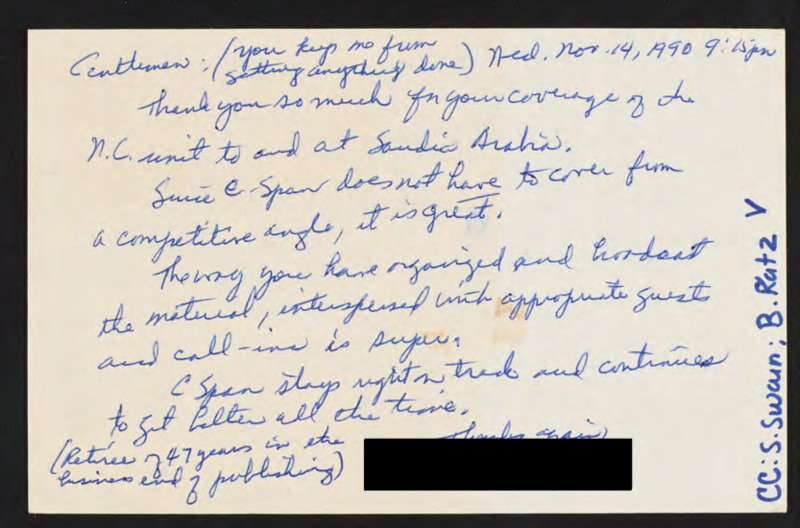 Gentlemen: (you keep me from
getting anything done) Wed. Nov. 14, 1990 9:15pm
Thank you so much for your coverage of the
N.C. unit to and at Saudia Arabia.
Since C-Span does not have to cover from
a competitive angle, it is great.
The way you have organized and broadcast
the material, interspersed with appropriate guests
and call-ins is super.
C Span stays right on track and continues
to get better all the time.
(Retiree of 47 years in the
business end of publishing)
thanks again
CC: S. Swain; B. Ratz V